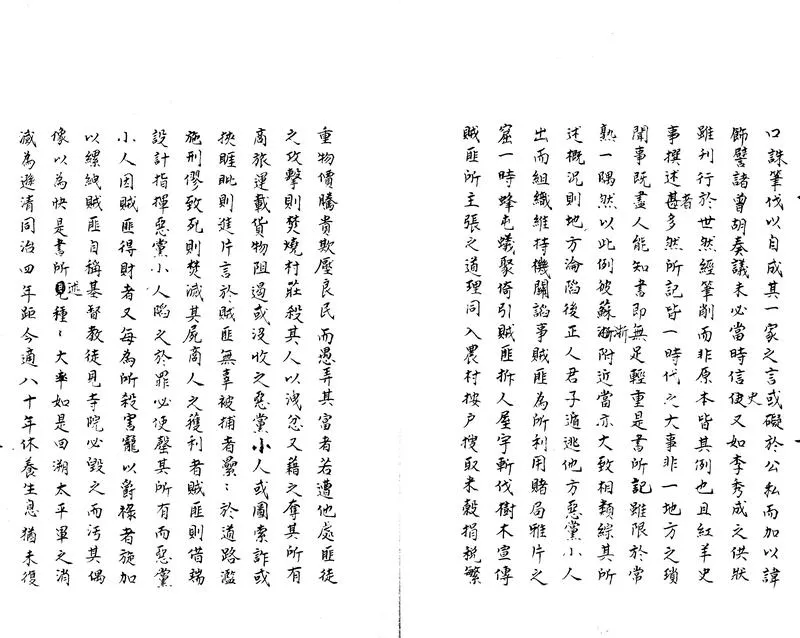 口誅筆伐以自成其一家之言或礙於公私而加以諱
飾譬諸曾胡奏議未必當時信史又如李秀成之供狀
雖刊行於世然經筆削而非原本皆其例也且紅羊史
事撰述者甚多然所記皆一時代之大事非一地方之瑣
聞事既盡人能知書即無足輕重是書所記雖限於常
熟一隅然以此例彼蘇浙附近當亦大致相類綜其所
述概況則地方淪陷後正人君子遁逃他方惡黨小人
出而組織維持機關諂事賊匪為所利用賭局雅片之
窟一時蜂屯蟻聚倚引賊匪拆人屋宇斬伐樹木宣傳
賊匪所主張之道理同入農村按戶搜取米穀捐稅繁
重物價騰貴欺壓良民而愚弄其富者若遭他處匪徒
之攻擊則焚燒村莊殺其人以洩忿又藉之奪其所有
商旅運載貨物阻遏或沒收之惡黨小人或圖索詐或
挾睚眦則進片言於賊匪無辜被捕者纍纍於道路濫
施刑僇致死則焚滅其屍商人之獲利者賊匪則借端
設計指揮惡黨小人陷之於罪必使罄其所有而惡黨
小人因賊匪得財者又每為所殺害寵以爵祿者旋加
以縲絏賊匪自稱基督教徒見寺院必毀之而污其偶
像以為快是書所述種種大率如是回溯太平軍之消
滅為遜清同治四年距今適八十年休養生息猶未復